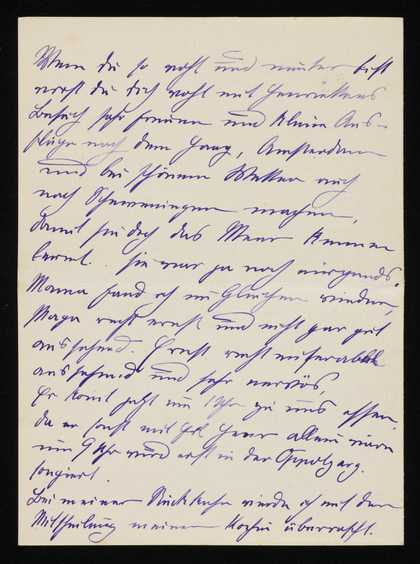 Wenn du so wohl und munter bist
wirst du dich wohl mit Henriettens
Besuch sehr freuen und kleine Aus-
flüge nach dem Haag, Amsterdam
und bei schönem Wetter auch
nach Scheveningen machen,
damit sie doch das Meer kennen
lernt. Sie war ja noch nirgends.
Mama fand ich im Gleichen wieder,
Papa recht und nicht gar gut
aussehend. Ernst recht miserabel
aussehend und sehr nervös,
Er kommt jetzt um 1 Uhr zu uns essen,
da er sonst mit Frl. allein wäre
um 9 Uhr wird erst in der Oppolzerg.
soupiert.
Bei meiner Rückkehr wurde ich mit der
Mittheilung meiner Köchin überrascht.